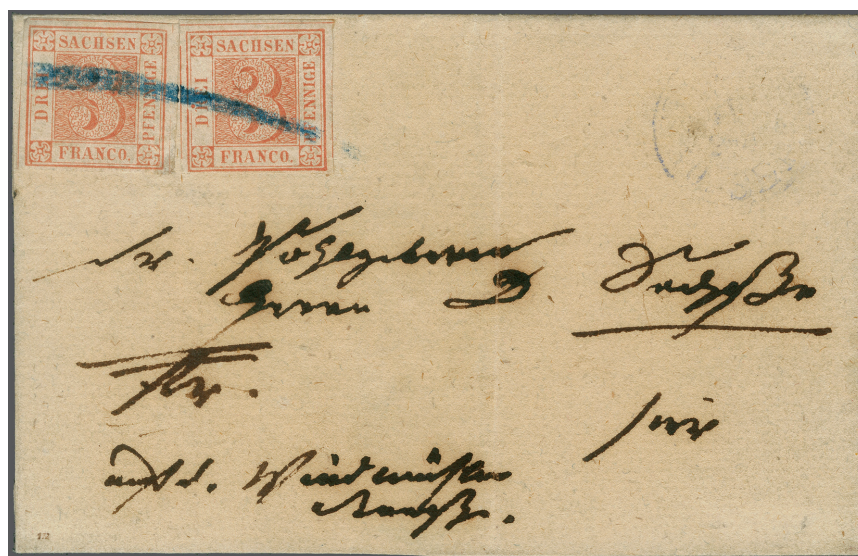 SACHSEN
DREI
3
PFENNIGE
FRANCO.
SACHSEN
DREI
3
PFENNIGE
FRANCO.
Sr. Wohlgeboren
Herrn D.
Fr.
hier
auf d. Windmühlen
straße.